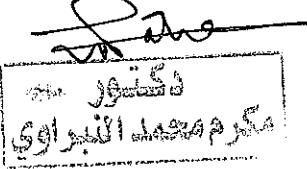 دكتور
مكرم محمد النبراوي